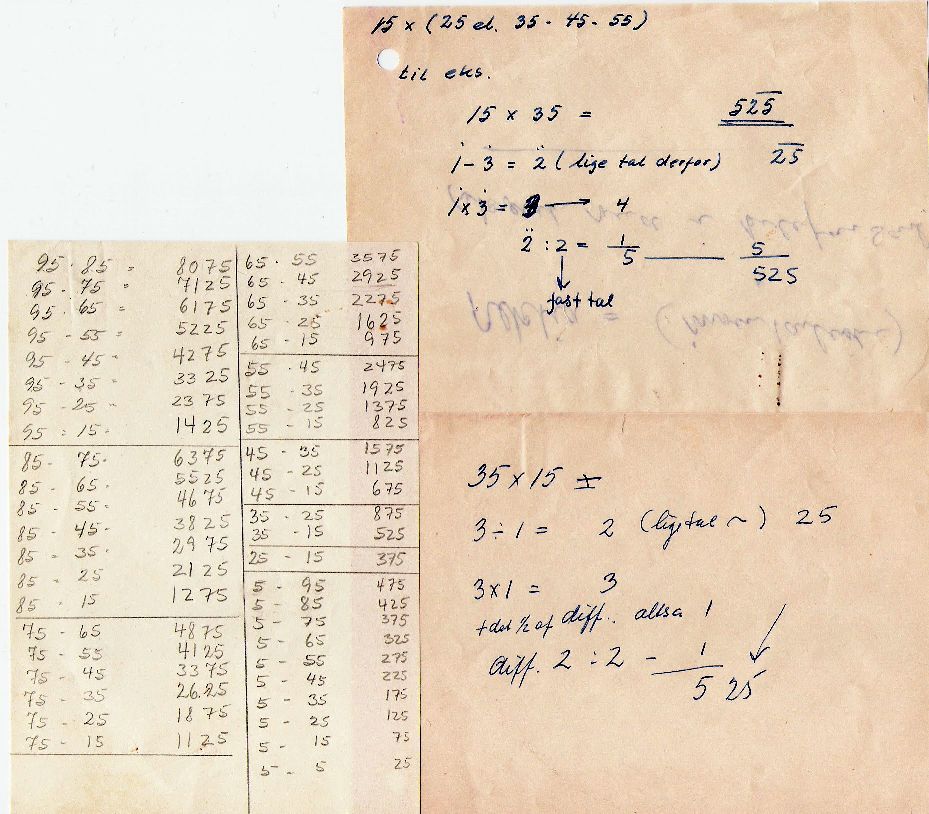 15 x (25 el. 35 - 45 - 55)
til eks.
15 x 35 = 525
1 - 3 = 2 (lige tal derfor) 25
1 x 3 = 3 → 4
2 : 2 = 1
5 5
525
fast tal
95 · 85 = 8075
95 · 75 = 7125
95 · 65 = 6175
95 - 55 = 5225
95 - 45 = 4275
95 - 35 = 3325
95 - 25 = 2375
95 = 15 - 1425
85 - 75 - 6375
85 - 65 - 5525
85 - 55 - 4675
85 - 45 - 3825
85 = 35 - 2975
85 - 25 2125
85 - 15 1275
75 - 65 4875
75 - 55 4125
75 - 45 3375
75 - 35 2625
75 - 25 1875
75 - 15 1125
65 · 55 3575
65 · 45 2925
65 · 35 2275
65 · 25 1625
65 - 15 975
55 · 45 2475
55 - 35 1925
55 - 25 1375
55 - 15 825
45 - 35 1575
45 - 25 1125
45 - 15 675
35 - 25 875
35 - 15 525
25 - 15 375
5 - 95 475
5 - 85 425
5 - 75 375
5 - 65 325
5 - 55 275
5 - 45 225
5 - 35 175
5 - 25 125
5 - 15 75
5 - 5 25
35 x 15 =
3 ÷ 1 = 2 (lige tal ~) 25
3 x 1 = 3
+ det ½ af diff. altså 1
diff. 2 : 2 - 1
5 25